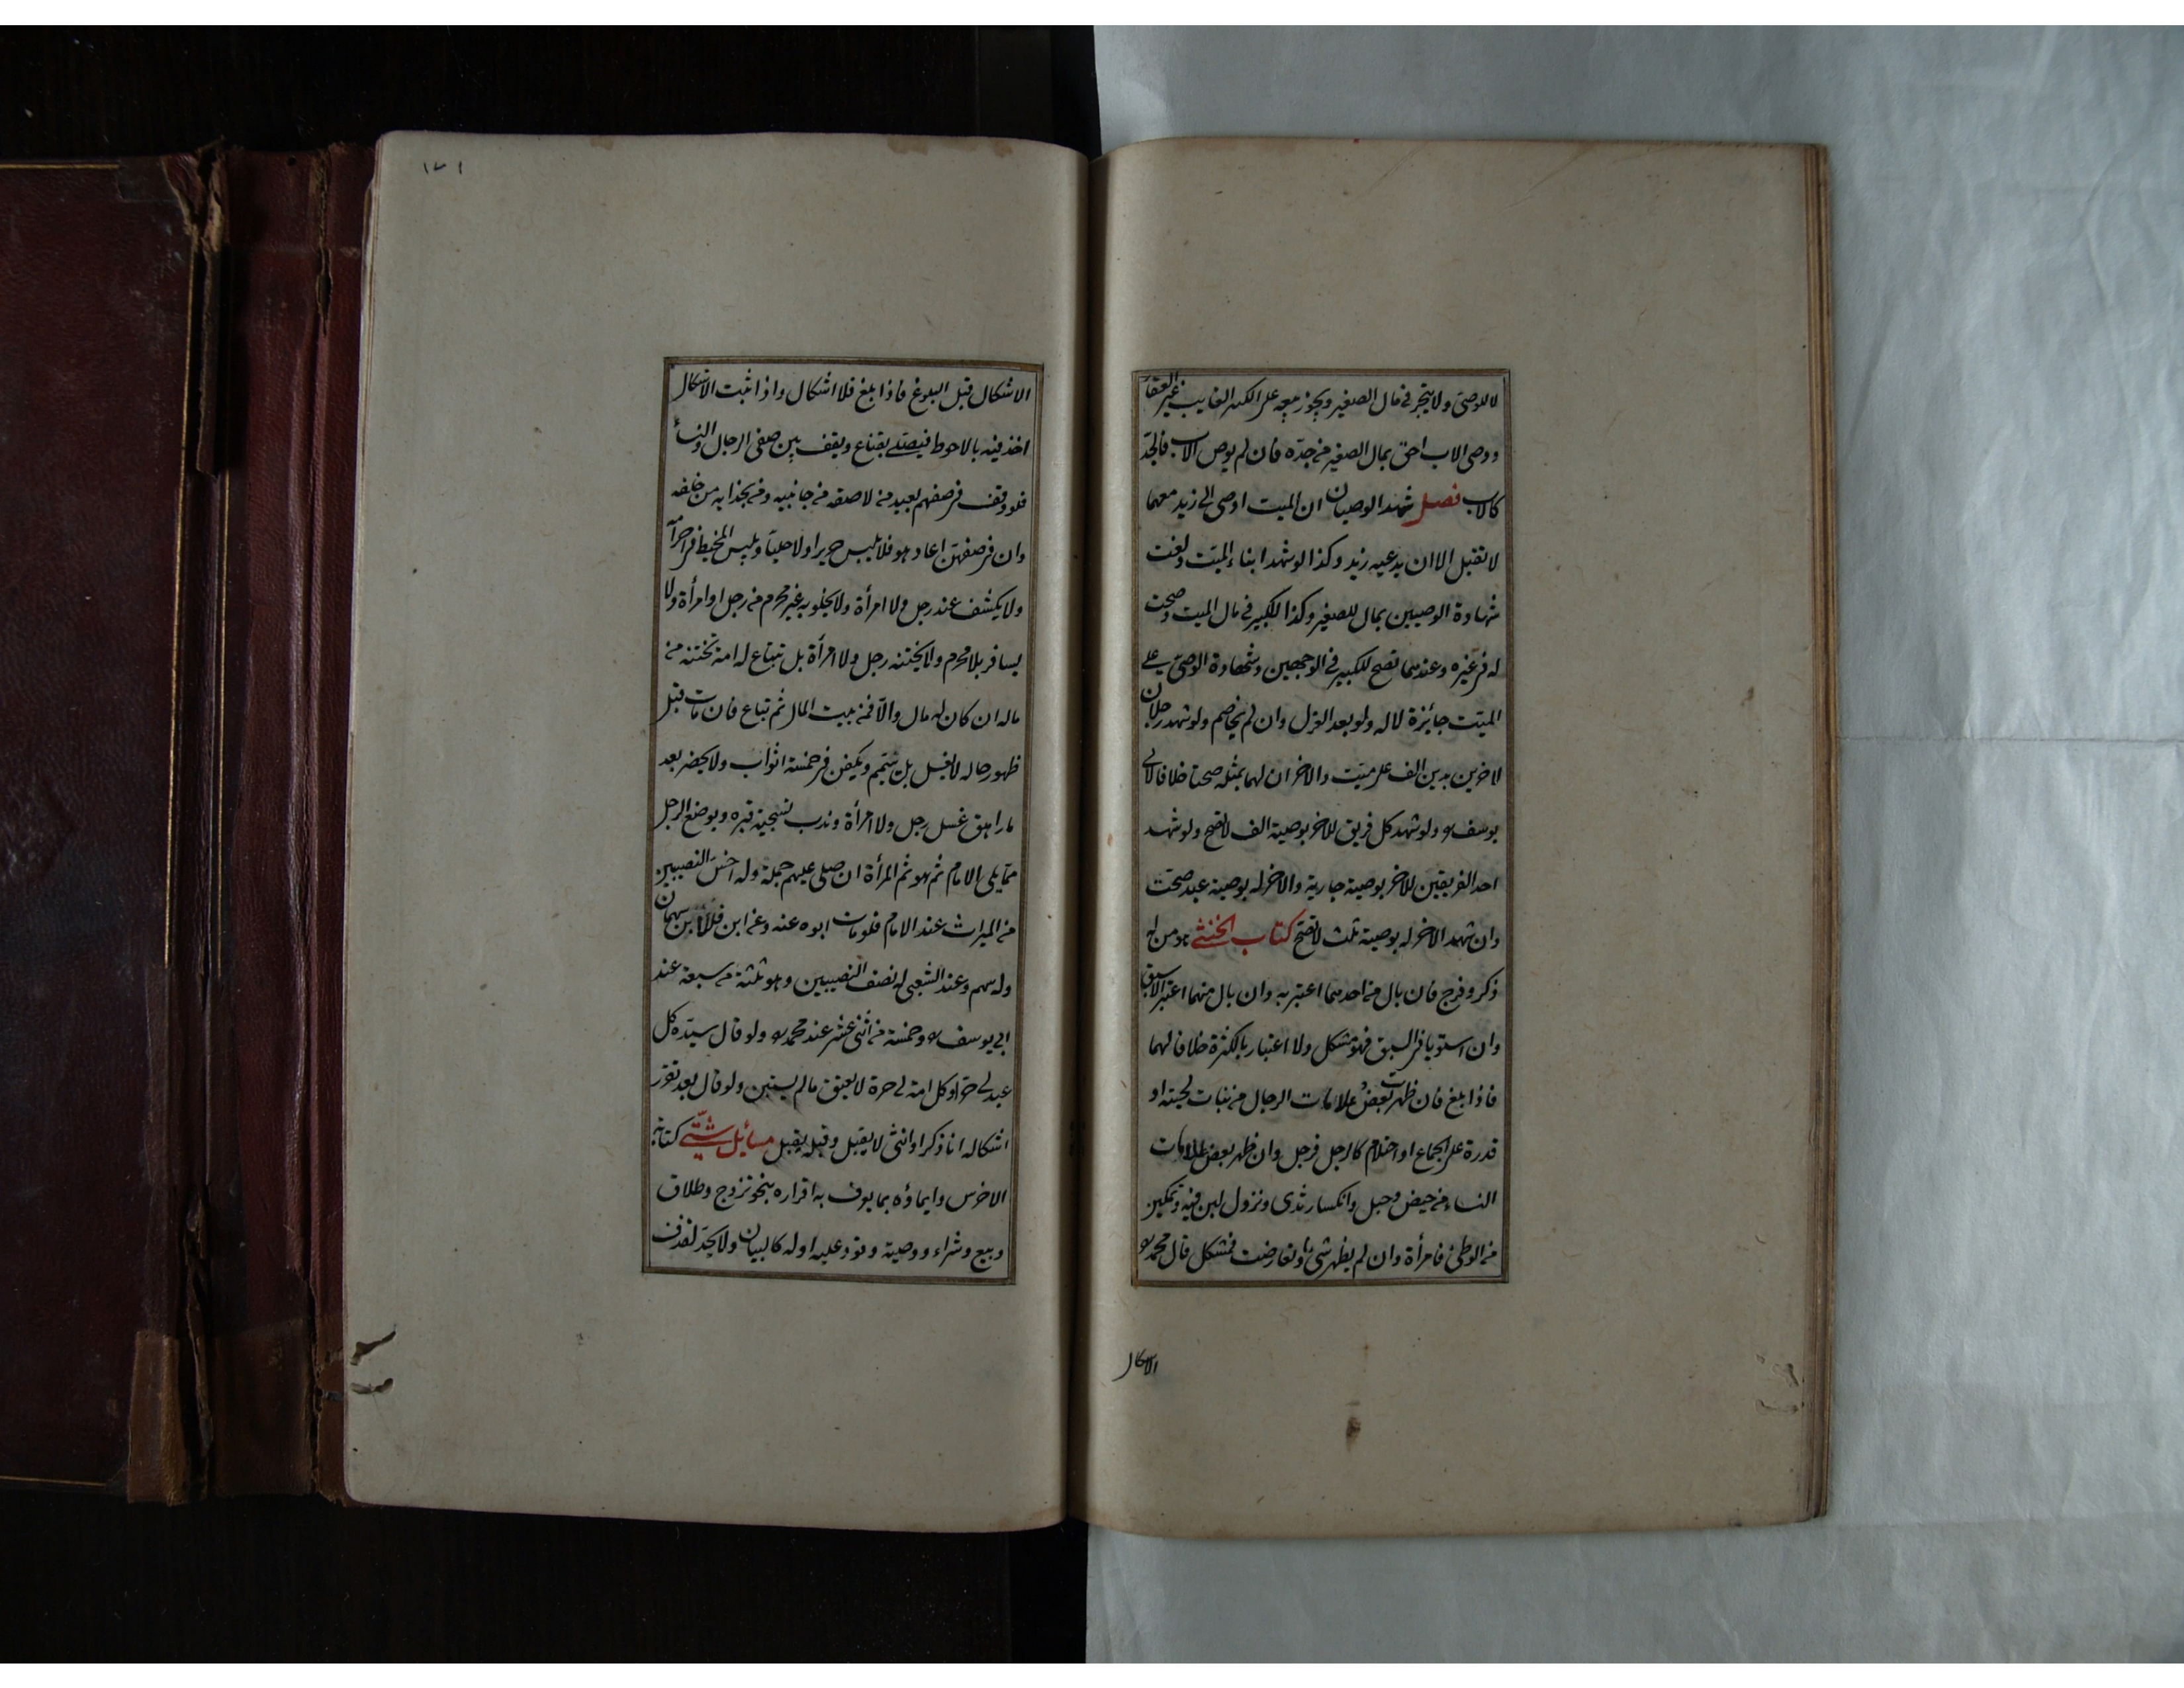 لا للوصى ولا يتجر فى مال الصغير ويجوز بيعه على الكبير الغايب غير العقار
ووصى الاب احق بمال الصغير من جده فان لم يوص الاب فالجد
كالاب فصل شهد الوصيان ان الميت اوصى الى زيد معهما
لا تقبل الا ان يدعيه زيد وكذا لو شهد ابناء الميت ولغت
شهادة الوصيين بمال للصغير وكذا للكبير فى مال الميت وصحت
له فى غيره وعندهما تصح للكبير فى الوجهين وشهادة الوصى على
الميت جائزة لا له ولو بعد العزل وان لم يخاصم ولو شهد رجلان
لاخرين بدين الف على ميت والاخران لهما بمثله صحتا خلافا لابى
يوسف ولو شهد كل فريق للاخر بوصية الف لا تصح ولو شهد
احد الفريقين للاخر بوصية جارية والاخر له بوصية عبد صحت
وان شهد الاخر له بوصية ثلث لا تصح كتاب الخنثى هو من له
ذكر وفرج فان بال من احدهما اعتبر به وان بال منهما اعتبر الاسبق
وان استويا فى السبق فهو مشكل ولا اعتبار بالكثرة خلافا لهما
فاذا بلغ فان ظهرت بعض علامات الرجال من نبات لحية او
قدرة على الجماع او احتلام كالرجل فرجل وان ظهر بعض علامات
النساء من حيض وحبل وانكسار ثدى ونزول لبن فيه وتمكين
من الوطئ فامرأة وان لم يظهر شئ او تعارضت فمشكل قال محمد
الاشكال
١٧١
الاشكال قبل البلوغ فاذا بلغ فلا اشكال واذا ثبت الاشكال
اخذ فيه بالاحوط فيصلى بقناع ويقف بين صفى الرجال والنساء
فلو وقف فى صفهم يعيد من لاصقه من جانبيه ومن بحذايه من خلفه
وان فى صفهن اعاد هو فلا يلبس حريرا ولا حليا ويلبس المخيط فى احرامه
ولا يكشف عند رجل ولا امرأة ولا يخلو به غير محرم من رجل او امرأة ولا
يسافر بلا محرم ولا يختنه رجل ولا امرأة بل تبتاع له امة تختنه من
ماله ان كان له مال والا فمن بيت المال ثم تباع فان مات قبل
ظهور حاله لا يغسل بل يتيمم ويكفن فى خمسة اثواب ولا يحضر بعد
ما راهق غسل رجل ولا امرأة وندب تسجية قبره ويوضع الرجل
مما يلى الامام ثم هو ثم المرأة ان صلى عليهم جملة وله اخس النصيبين
من الميراث عند الامام فلو مات ابوه عنه وعن ابن فللابن سهمان
وله سهم وعند الشعبى له نصف النصيبين وهو ثلثة من سبعة عند
ابى يوسف وخمسة من اثنى عشر عند محمد ولو قال سيده كل
عبد لى حر او كل امة لى حرة لا يعتق ما لم يستبن ولو قال بعد تقرر
اشكاله انا ذكر او انثى لا يقبل وقبله يقبل مسائل شتى كتابة
الاخرس وايماؤه بما يعرف به اقراره بنحو تزوج وطلاق
وبيع وشراء ووصية وقود عليه او له كالبيان ولا يحد لقذف